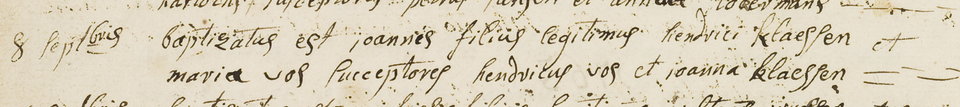 susceptores petrus jansen et anna
8 septbris baptizatus est joannes filius legitimus hendrici klaessen et
maria vos succeptores hendricus vos et joanna klaessen